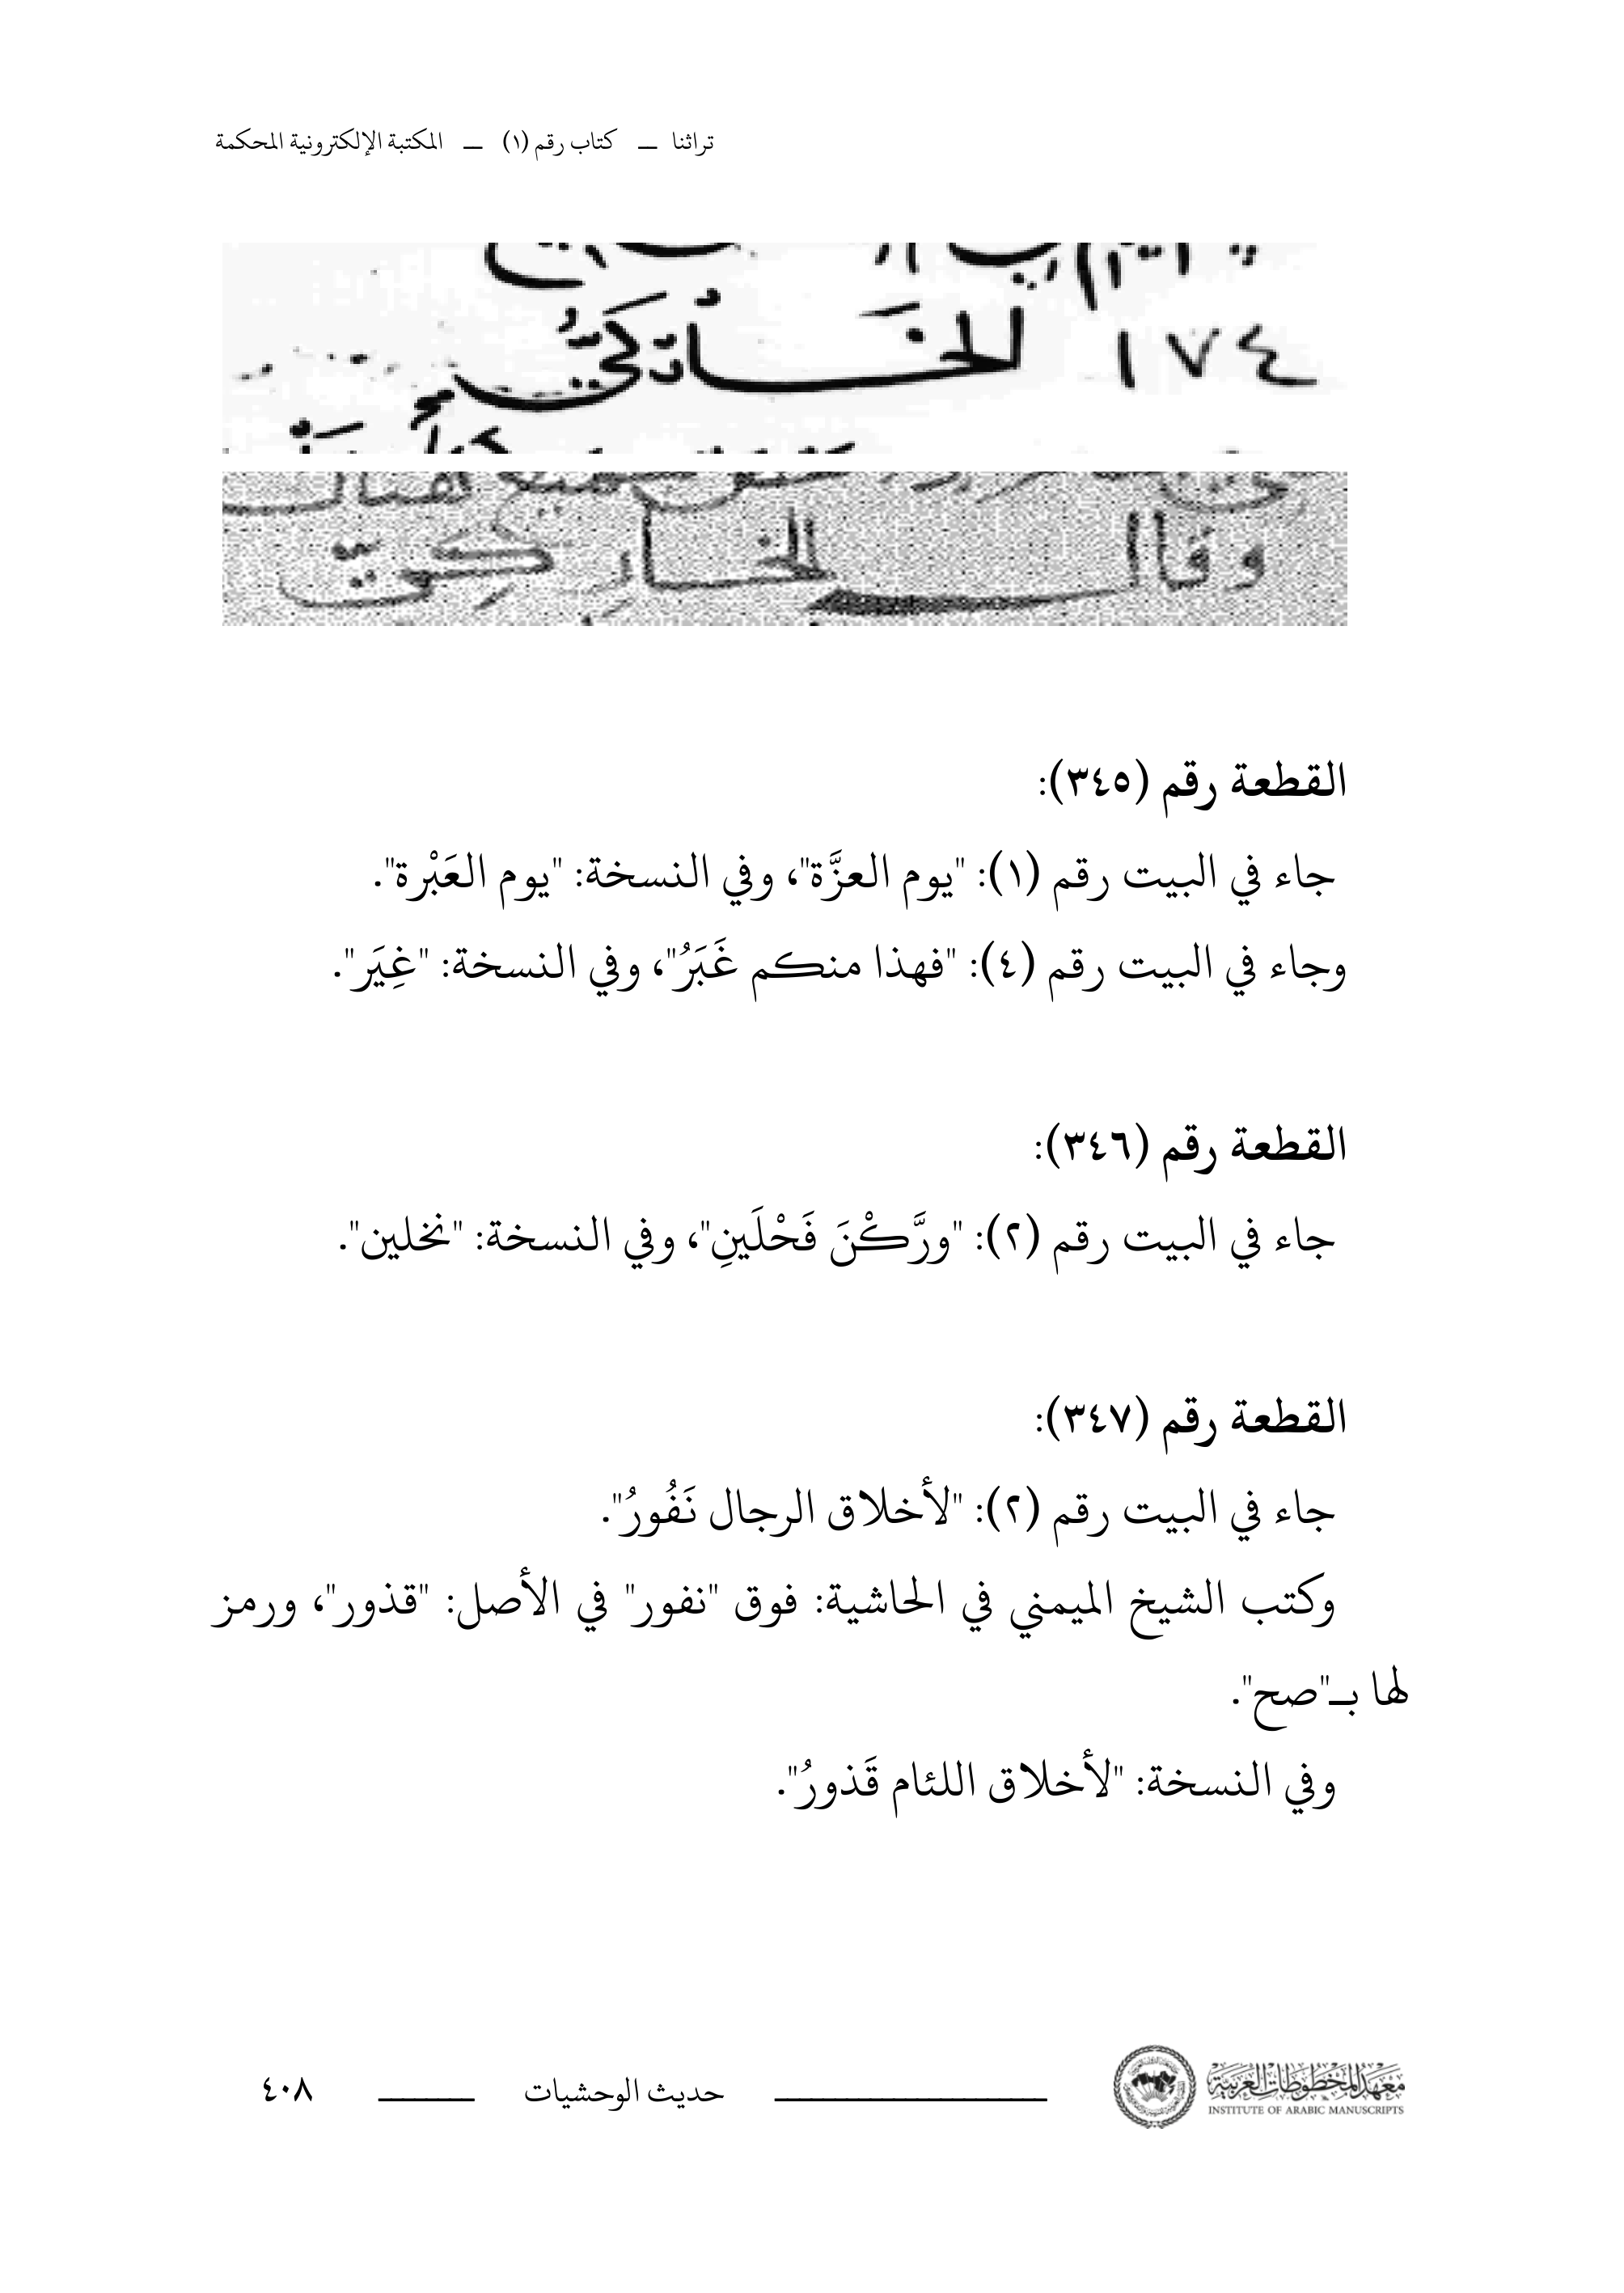 تراثنا — كتاب رقم (١) — المكتبة الإلكترونية المحكمة
١٧٤
وقال
القطعة رقم (٣٤٥):
جاء في البيت رقم (١): "يوم العزَّة"، وفي النسخة: "يوم العَبْرة".
وجاء في البيت رقم (٤): "فهذا منكم غَبَرُ"، وفي النسخة: "غِيَر".
القطعة رقم (٣٤٦):
جاء في البيت رقم (٢): "ورَّكْنَ فَحْلَينِ"، وفي النسخة: "نخلين".
القطعة رقم (٣٤٧):
جاء في البيت رقم (٢): "لأخلاق الرجال نَفُورُ".
وكتب الشيخ الميمني في الحاشية: فوق "نفور" في الأصل: "قذور"، ورمز
لها بـ"صح".
وفي النسخة: "لأخلاق اللئام قَذورُ".
معهد المخطوطات العربية
INSTITUTE OF ARABIC MANUSCRIPTS
حديث الوحشيات
٤٠٨